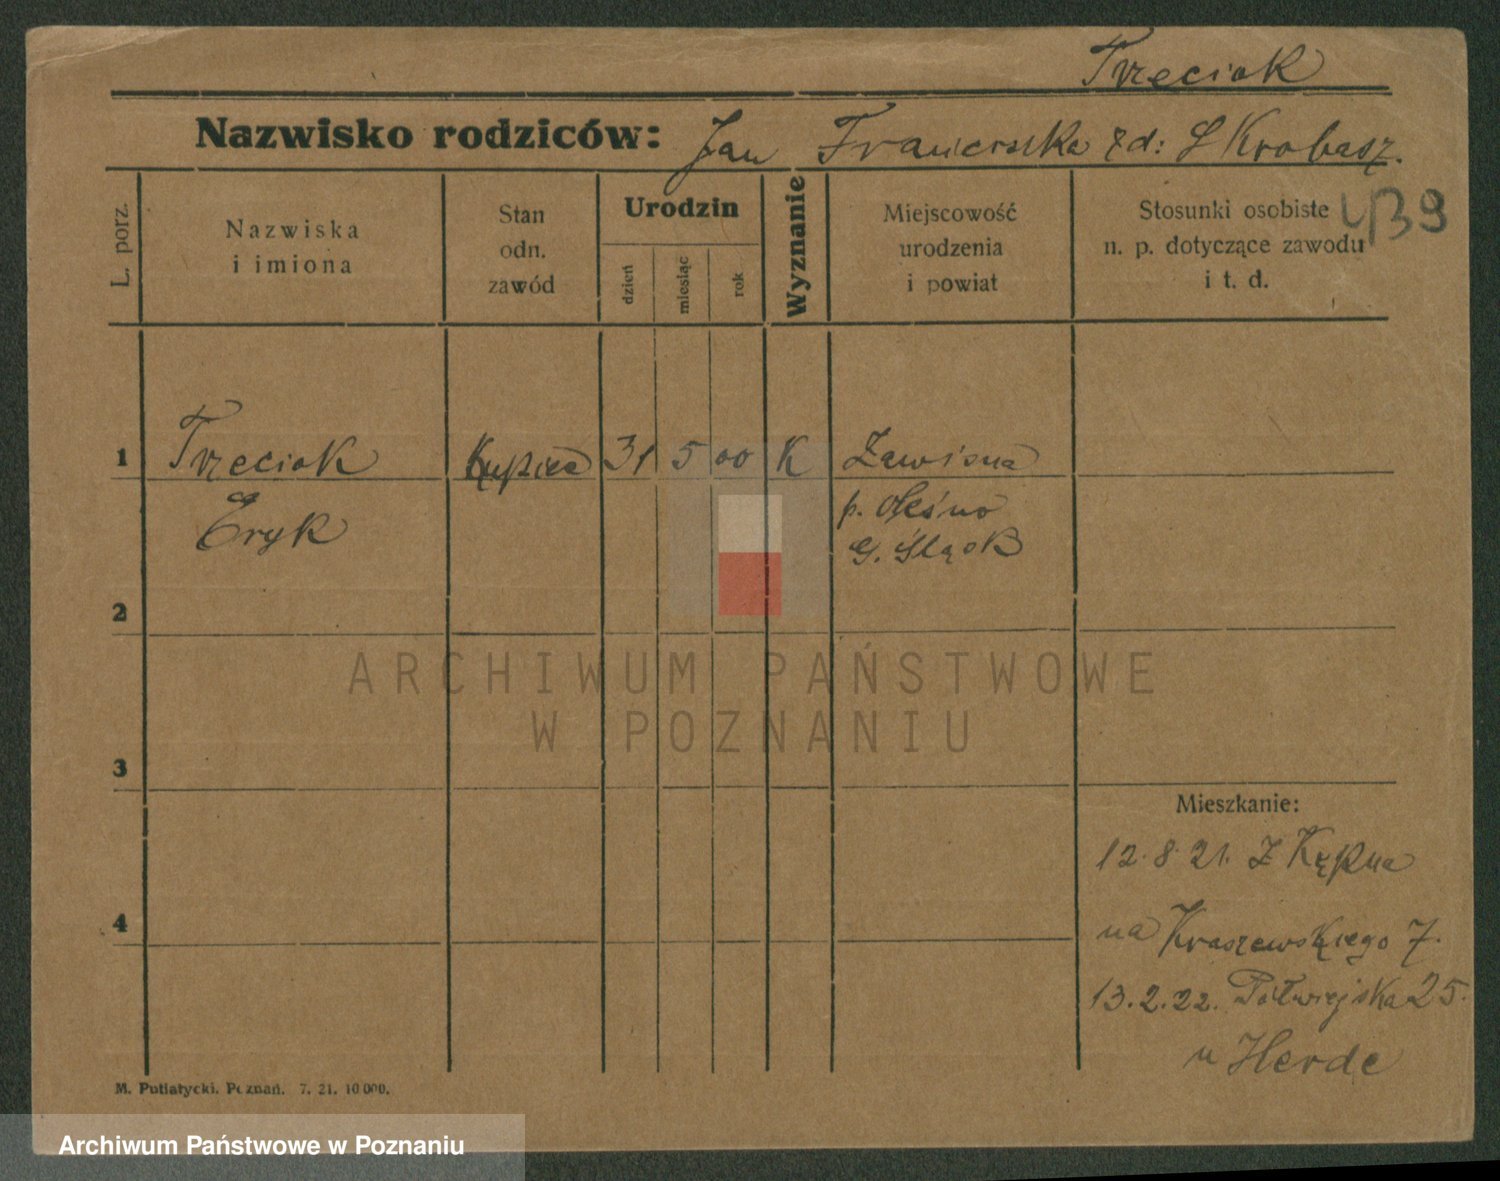 Trzeciak
Nazwisko rodziców: Jan Franciszka zd: Skrobasz.
439
L. porz.
Nazwiska
i imiona
Stan
odn.
zawód
Urodzin
dzień
miesiąc
rok
Wyznanie
Miejscowość
urodzenia
i powiat
Stosunki osobiste
n. p. dotyczące zawodu
i t. d.
1 Trzeciak Kupiec 31 5 00 K Zawisna
Eryk p. Oleśno
G. Śląsk
2
ARCHIWUM PAŃSTWOWE
W POZNANIU
3
Mieszkanie:
12.8.21. z Kępna
4
na Kraszewskiego 7.
13.2.22. Półwiejska 25.
u Herde
M. Putiatycki. Poznań. 7. 21. 10 000.
Archiwum Państwowe w Poznaniu